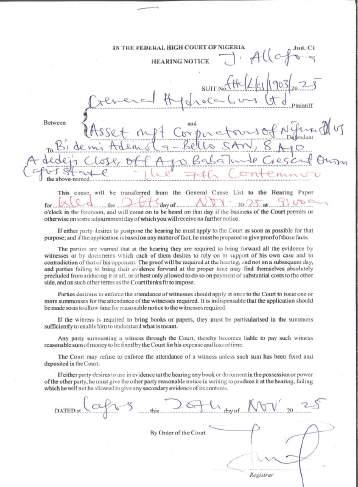 IN THE FEDERAL HIGH COURT OF NIGERIA
HEARING NOTICE J. Allagoa
SUIT No. FHC/L/ /1903/20 25
General Hydrocarbons Ltd Plaintiff
Between and
Asset mgt Corporation of Nigeria
Defendant
To Bidemi Ademola-Bello SAN, 8 Ayo
Adedeji Close, off Ayo Babatunde Crescent Oniru
Lagos State The 7th Contemnor
the above-named
This cause, will be transferred from the General Cause List to the Hearing Paper
for day of Nov 20 25 at 9:00am
o'clock in the forenoon, and will come on to be heard on that day if the business of the Court permits or
otherwise on some adjournment day of which you will receive no further notice.
If either party desires to postpone the hearing he must apply to the Court as soon as possible for that
purpose; and if the application is based on any matter of fact, he must be prepared to give proof of those facts.
The parties are warned that at the hearing they are required to bring forward all the evidence by
witnesses or by documents which each of them desires to rely on in support of his own case and to
contradiction of that of his opponent. The proof will be required at the hearing, and not on a subsequent day,
and parties failing to bring their evidence forward at the proper time may find themselves absolutely
precluded from adducing it at all, or at best only allowed to do so on payment of substantial costs to the other
side, and on such other terms as the Court thinks fit to impose.
Parties desirous to enforce the attendance of witnesses should apply at once to the Court to issue one or
more summonses for the attendance of the witnesses required. It is indispensable that the application should
be made so as to allow time for reasonable notice to the witnesses required.
If the witness is required to bring books or papers, they must be particularised in the summons
sufficiently to enable him to understand what is meant.
Any party summoning a witness through the Court, thereby becomes liable to pay such witness
reasonable sum of money to be fixed by the Court for his expense and loss of time.
The Court may refuse to enforce the attendance of a witness unless such sum has been fixed and
deposited in the Court.
If either party desires to use in evidence at the hearing any book or document in the possession or power
of the other party, he must give the other party reasonable notice in writing to produce it at the hearing, failing
which he will not be allowed to give any secondary evidence of its contents.
DATED at Lagos this 20th day of Nov 20 25
By Order of the Court
Registrar